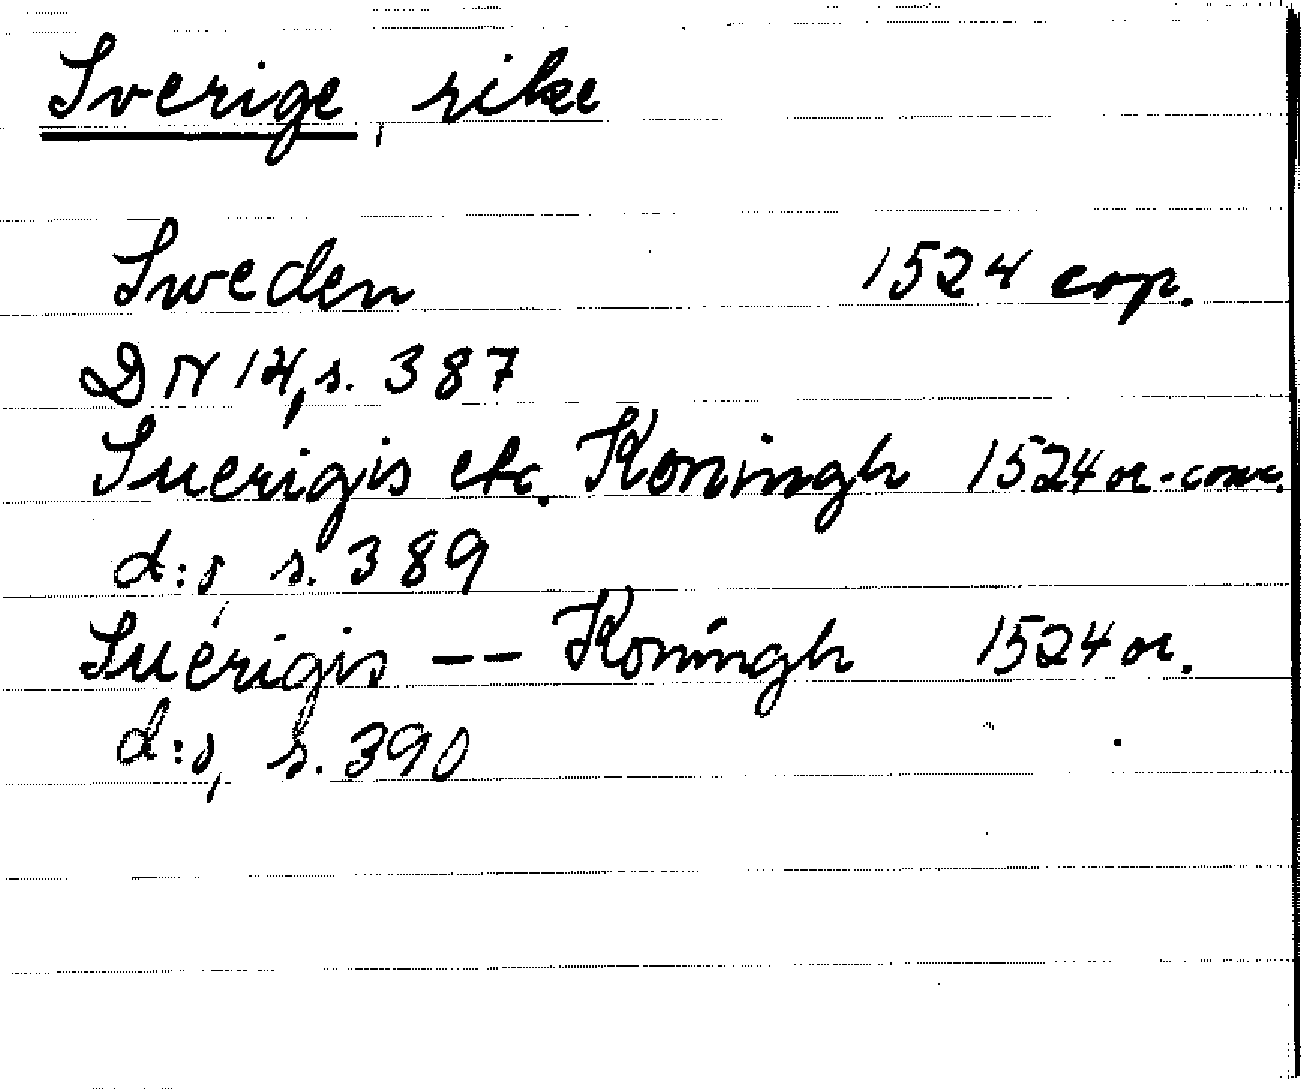 Sverige, rike
Sweden 1524 cop.
DN 14, s. 387
Suerigis etc. Koningh 1524 or.-conc.
d:o, s. 389
Suerigis -- Koningh 1524 or.
d:o, s. 390